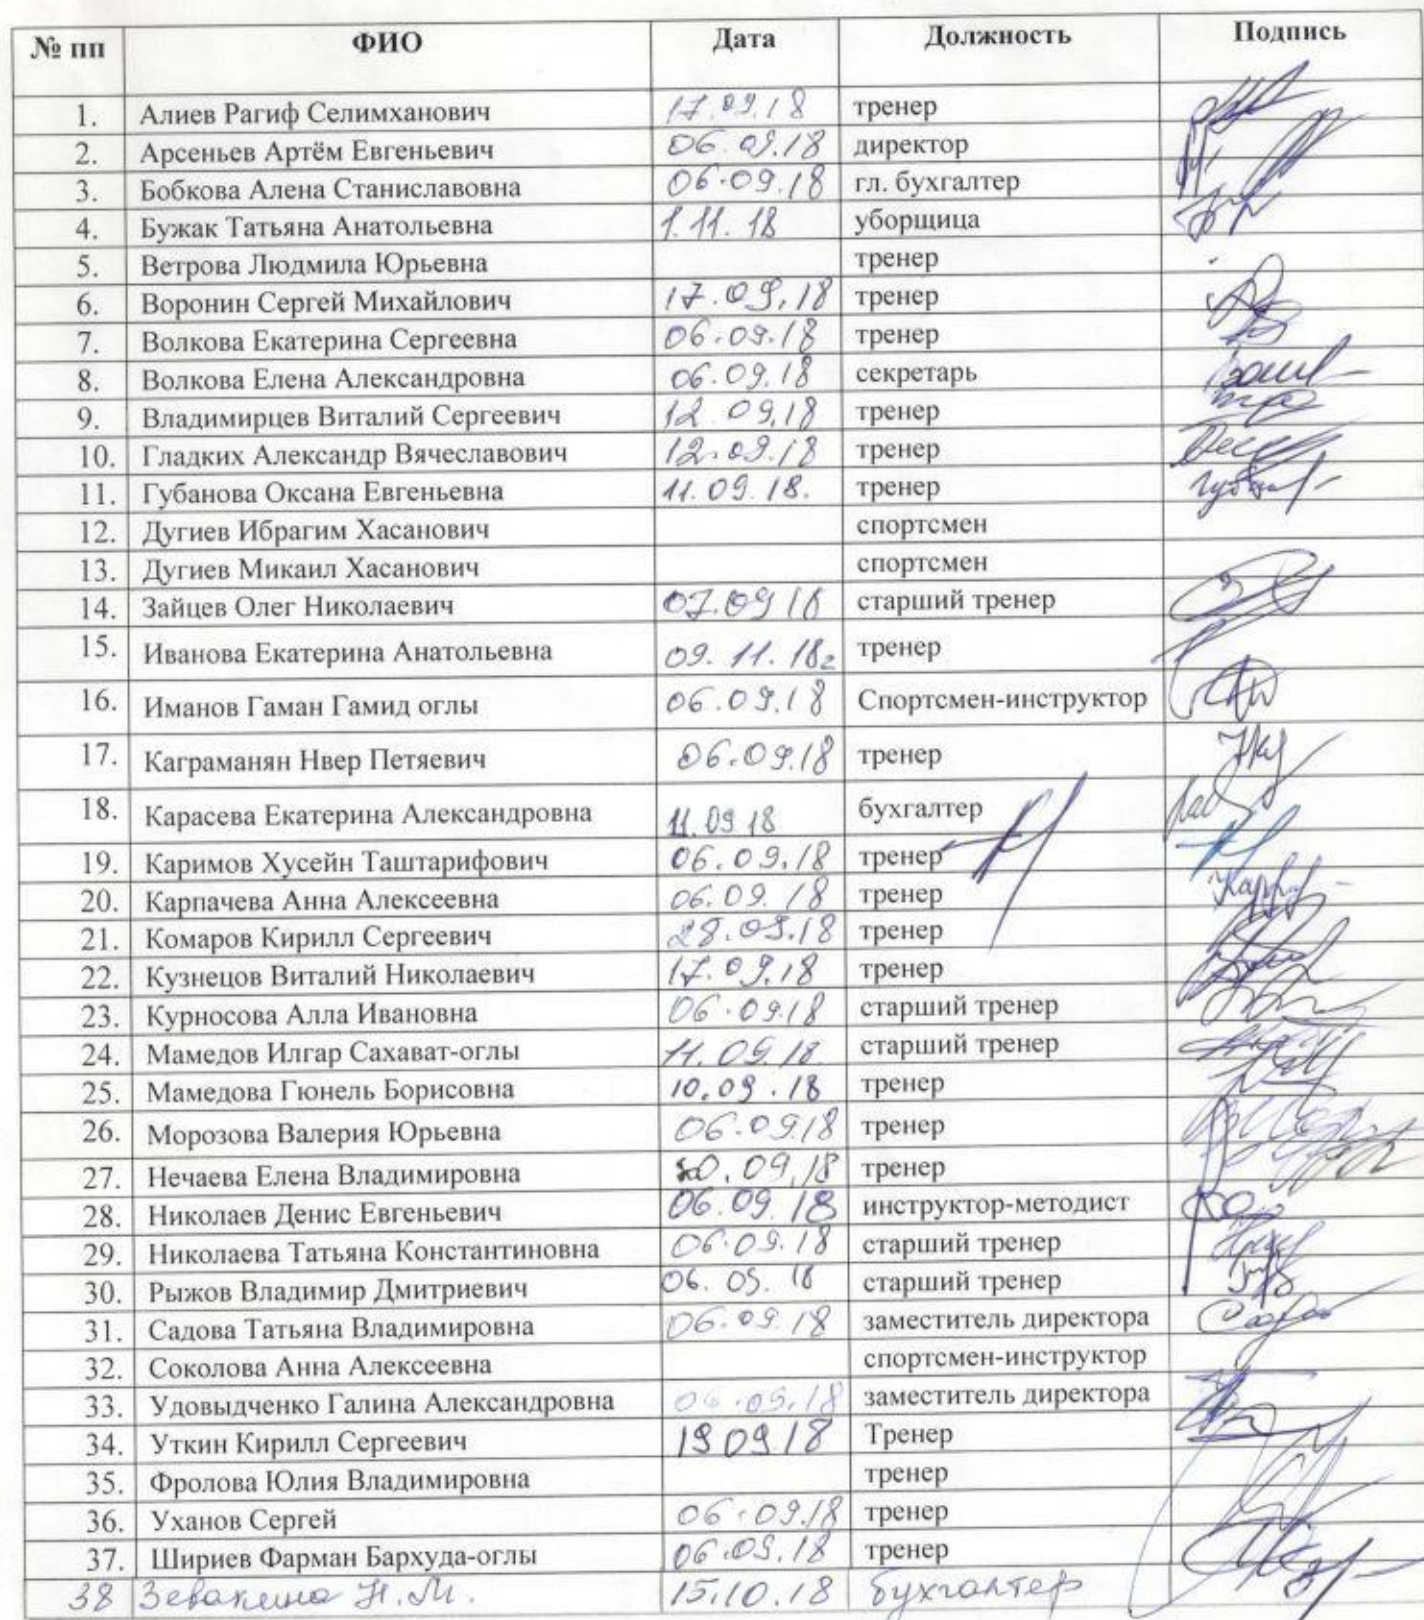 № пп ФИО Дата Должность Подпись
1. Алиев Рагиф Селимханович 17.09.18 тренер
2. Арсеньев Артём Евгеньевич 06.09.18 директор
3. Бобкова Алена Станиславовна 06.09.18 гл. бухгалтер
4. Бужак Татьяна Анатольевна 1.11.18 уборщица
5. Ветрова Людмила Юрьевна тренер
6. Воронин Сергей Михайлович 17.09.18 тренер
7. Волкова Екатерина Сергеевна 06.09.18 тренер
8. Волкова Елена Александровна 06.09.18 секретарь
9. Владимирцев Виталий Сергеевич 12.09.18 тренер
10. Гладких Александр Вячеславович 12.09.18 тренер
11. Губанова Оксана Евгеньевна 11.09.18. тренер
12. Дугиев Ибрагим Хасанович спортсмен
13. Дугиев Микаил Хасанович спортсмен
14. Зайцев Олег Николаевич 07.09 18 старший тренер
15. Иванова Екатерина Анатольевна 09.11.18г тренер
16. Иманов Гаман Гамид оглы 06.09.18 Спортсмен-инструктор
17. Каграманян Нвер Петяевич 06.09.18 тренер
18. Карасева Екатерина Александровна 11.09 18 бухгалтер
19. Каримов Хусейн Таштарифович 06.09.18 тренер
20. Карпачева Анна Алексеевна 06.09.18 тренер
21. Комаров Кирилл Сергеевич 28.09.18 тренер
22. Кузнецов Виталий Николаевич 17.09.18 тренер
23. Курносова Алла Ивановна 06.09.18 старший тренер
24. Мамедов Илгар Сахават-оглы 11.09.18 старший тренер
25. Мамедова Гюнель Борисовна 10.09.18 тренер
26. Морозова Валерия Юрьевна 06.09.18 тренер
27. Нечаева Елена Владимировна 10.09.18 тренер
28. Николаев Денис Евгеньевич 06.09.18 инструктор-методист
29. Николаева Татьяна Константиновна 06.09.18 старший тренер
30. Рыжов Владимир Дмитриевич 06.09.18 старший тренер
31. Садова Татьяна Владимировна 06.09.18 заместитель директора
32. Соколова Анна Алексеевна спортсмен-инструктор
33. Удовыдченко Галина Александровна 06.09.18 заместитель директора
34. Уткин Кирилл Сергеевич 19 09 18 Тренер
35. Фролова Юлия Владимировна тренер
36. Уханов Сергей 06.09.18 тренер
37. Шириев Фарман Бархуда-оглы 06.09.18 тренер
38 Зевакина Н.М. 15.10.18 бухгалтер